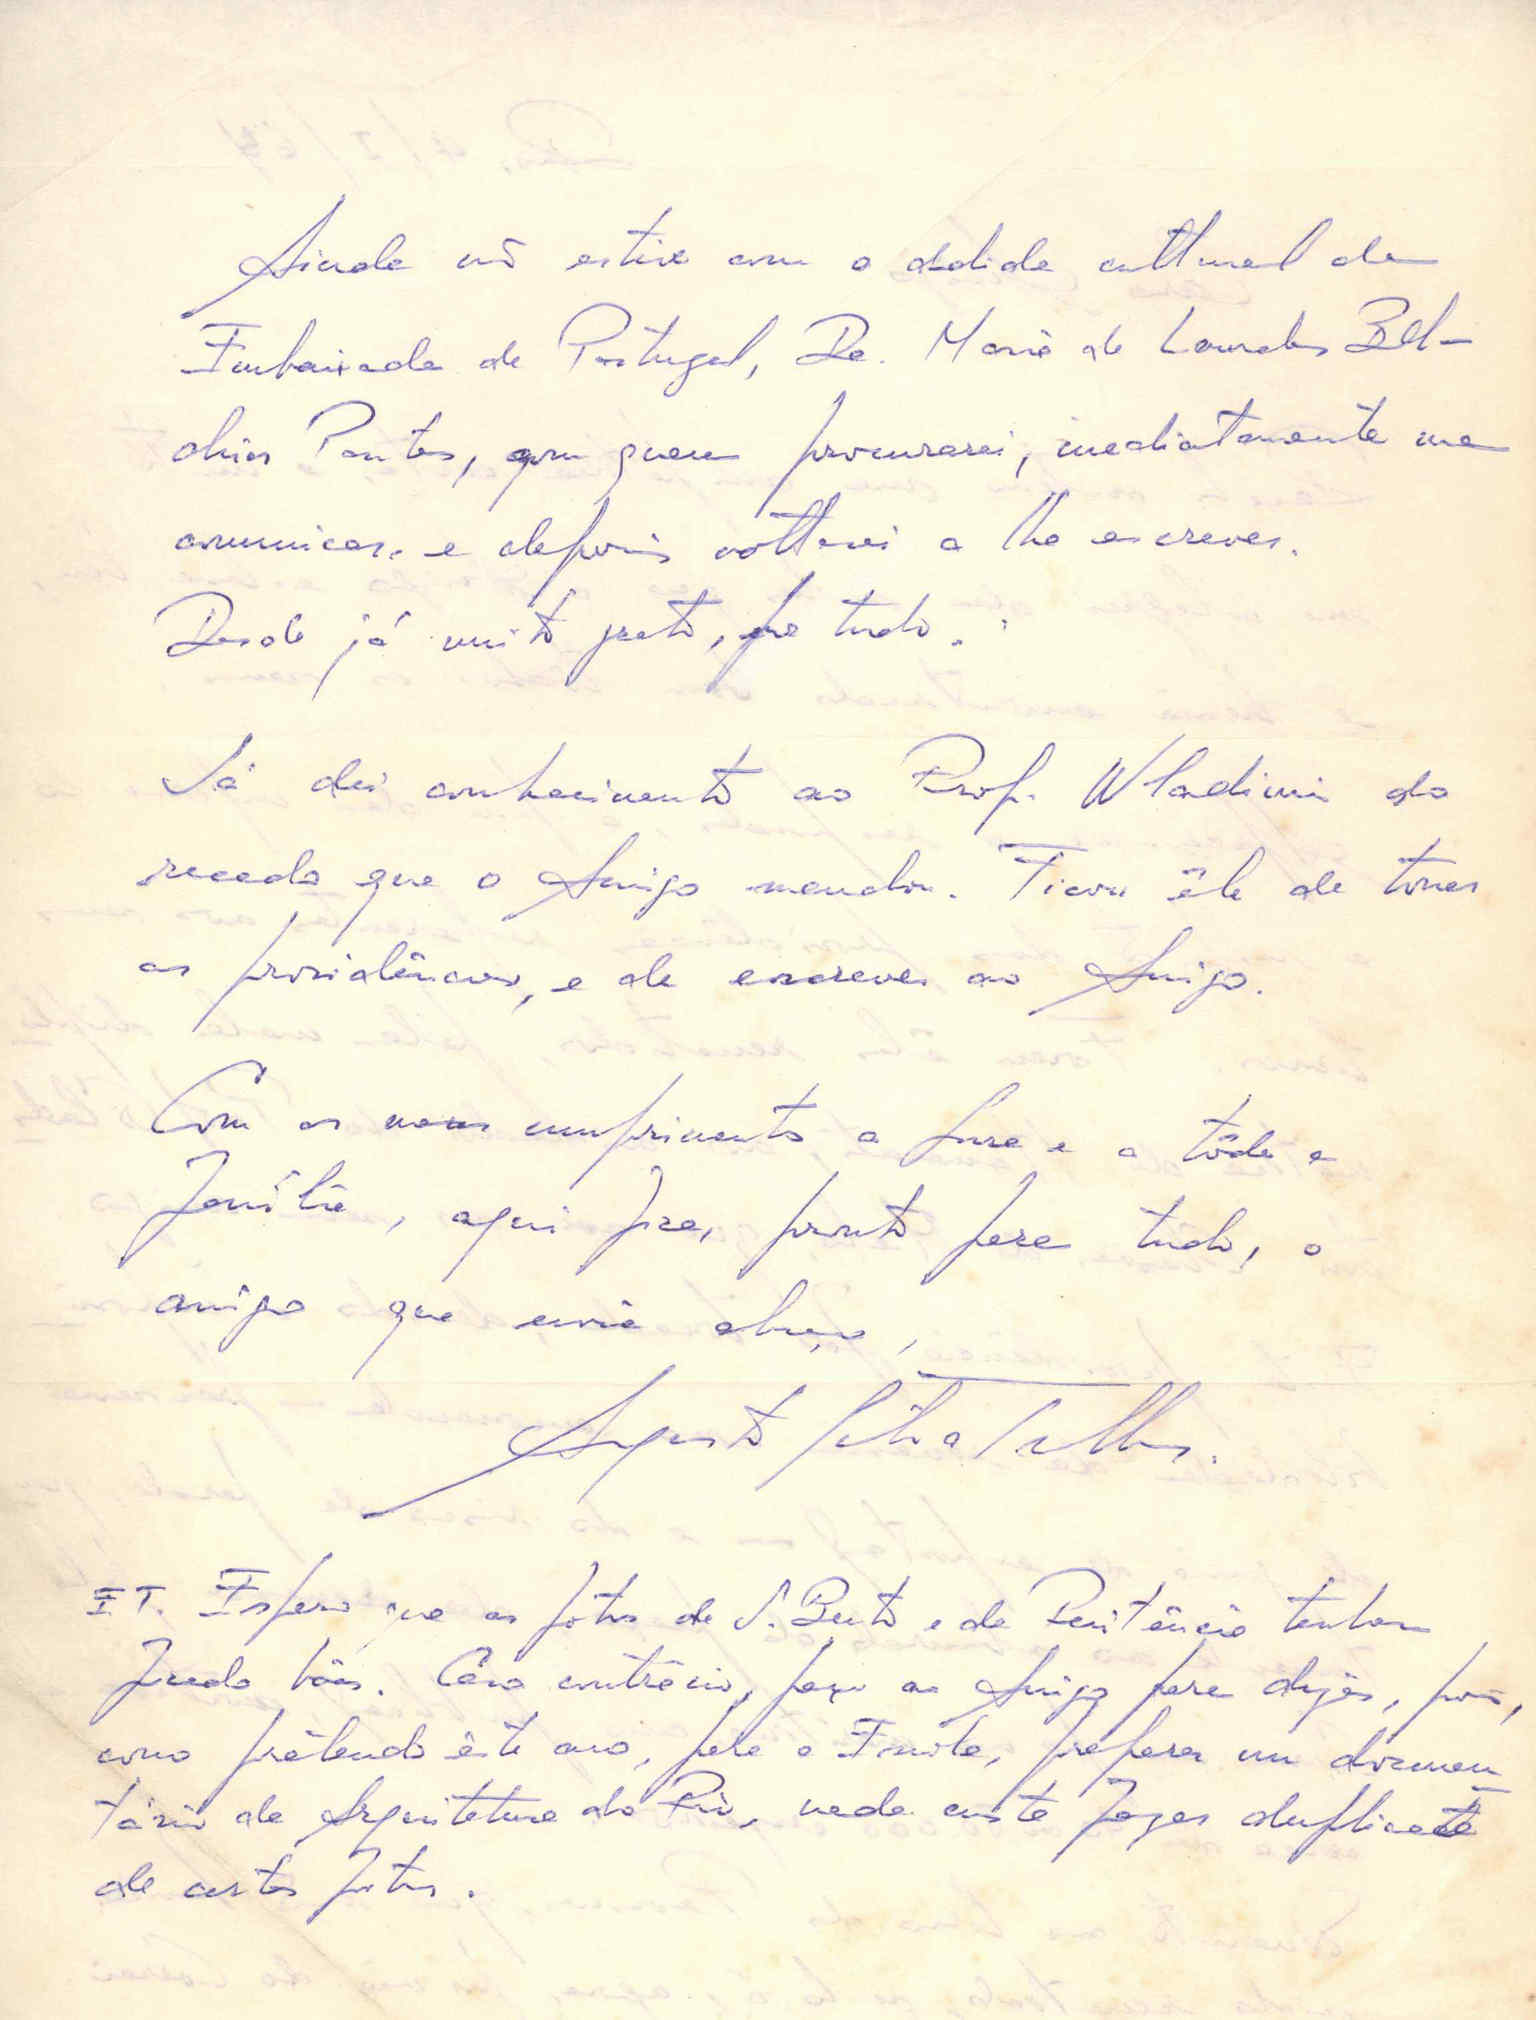 Ainda não estive com o adido cultural da
Embaixada de Portugal, Da. Maria de Lourdes Bel-
chior Pontes, com quem procurarei, imediatamente me
comunicar, e depois voltarei a lhe escrever.
Desde já muito grato, por tudo.
Já dei conhecimento ao Prof. Wladimir do
recado que o Amigo mandou. Ficou êle de tomar
as providências, e de escrever ao Amigo.
Com os meus cumprimentos a Sra e a tôda a
família, aqui fica, pronto para tudo, o
amigo que envia abraço,
Augusto Silva Telles.
ET. Espero que as fotos de S. Bento e da Penitência tenham
ficado bôas. Caso contrário, peço ao Amigo para dizer, pois,
como pretendo êste ano, para a Escola, preparar um documen
tário da Arquitetura do Rio, nada custa fazer duplicata
de certas fotos.